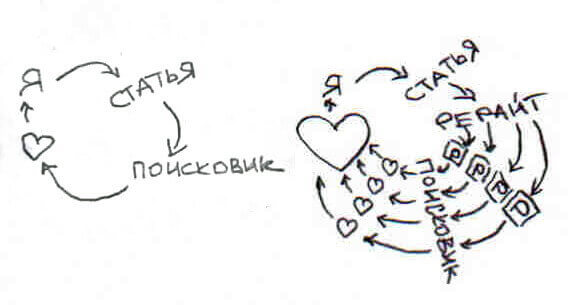 Я
СТАТЬЯ
ПОИСКОВИК
Я
СТАТЬЯ
РЕРАЙТ
Р
Р
Р
Р
ПОИСКОВИК